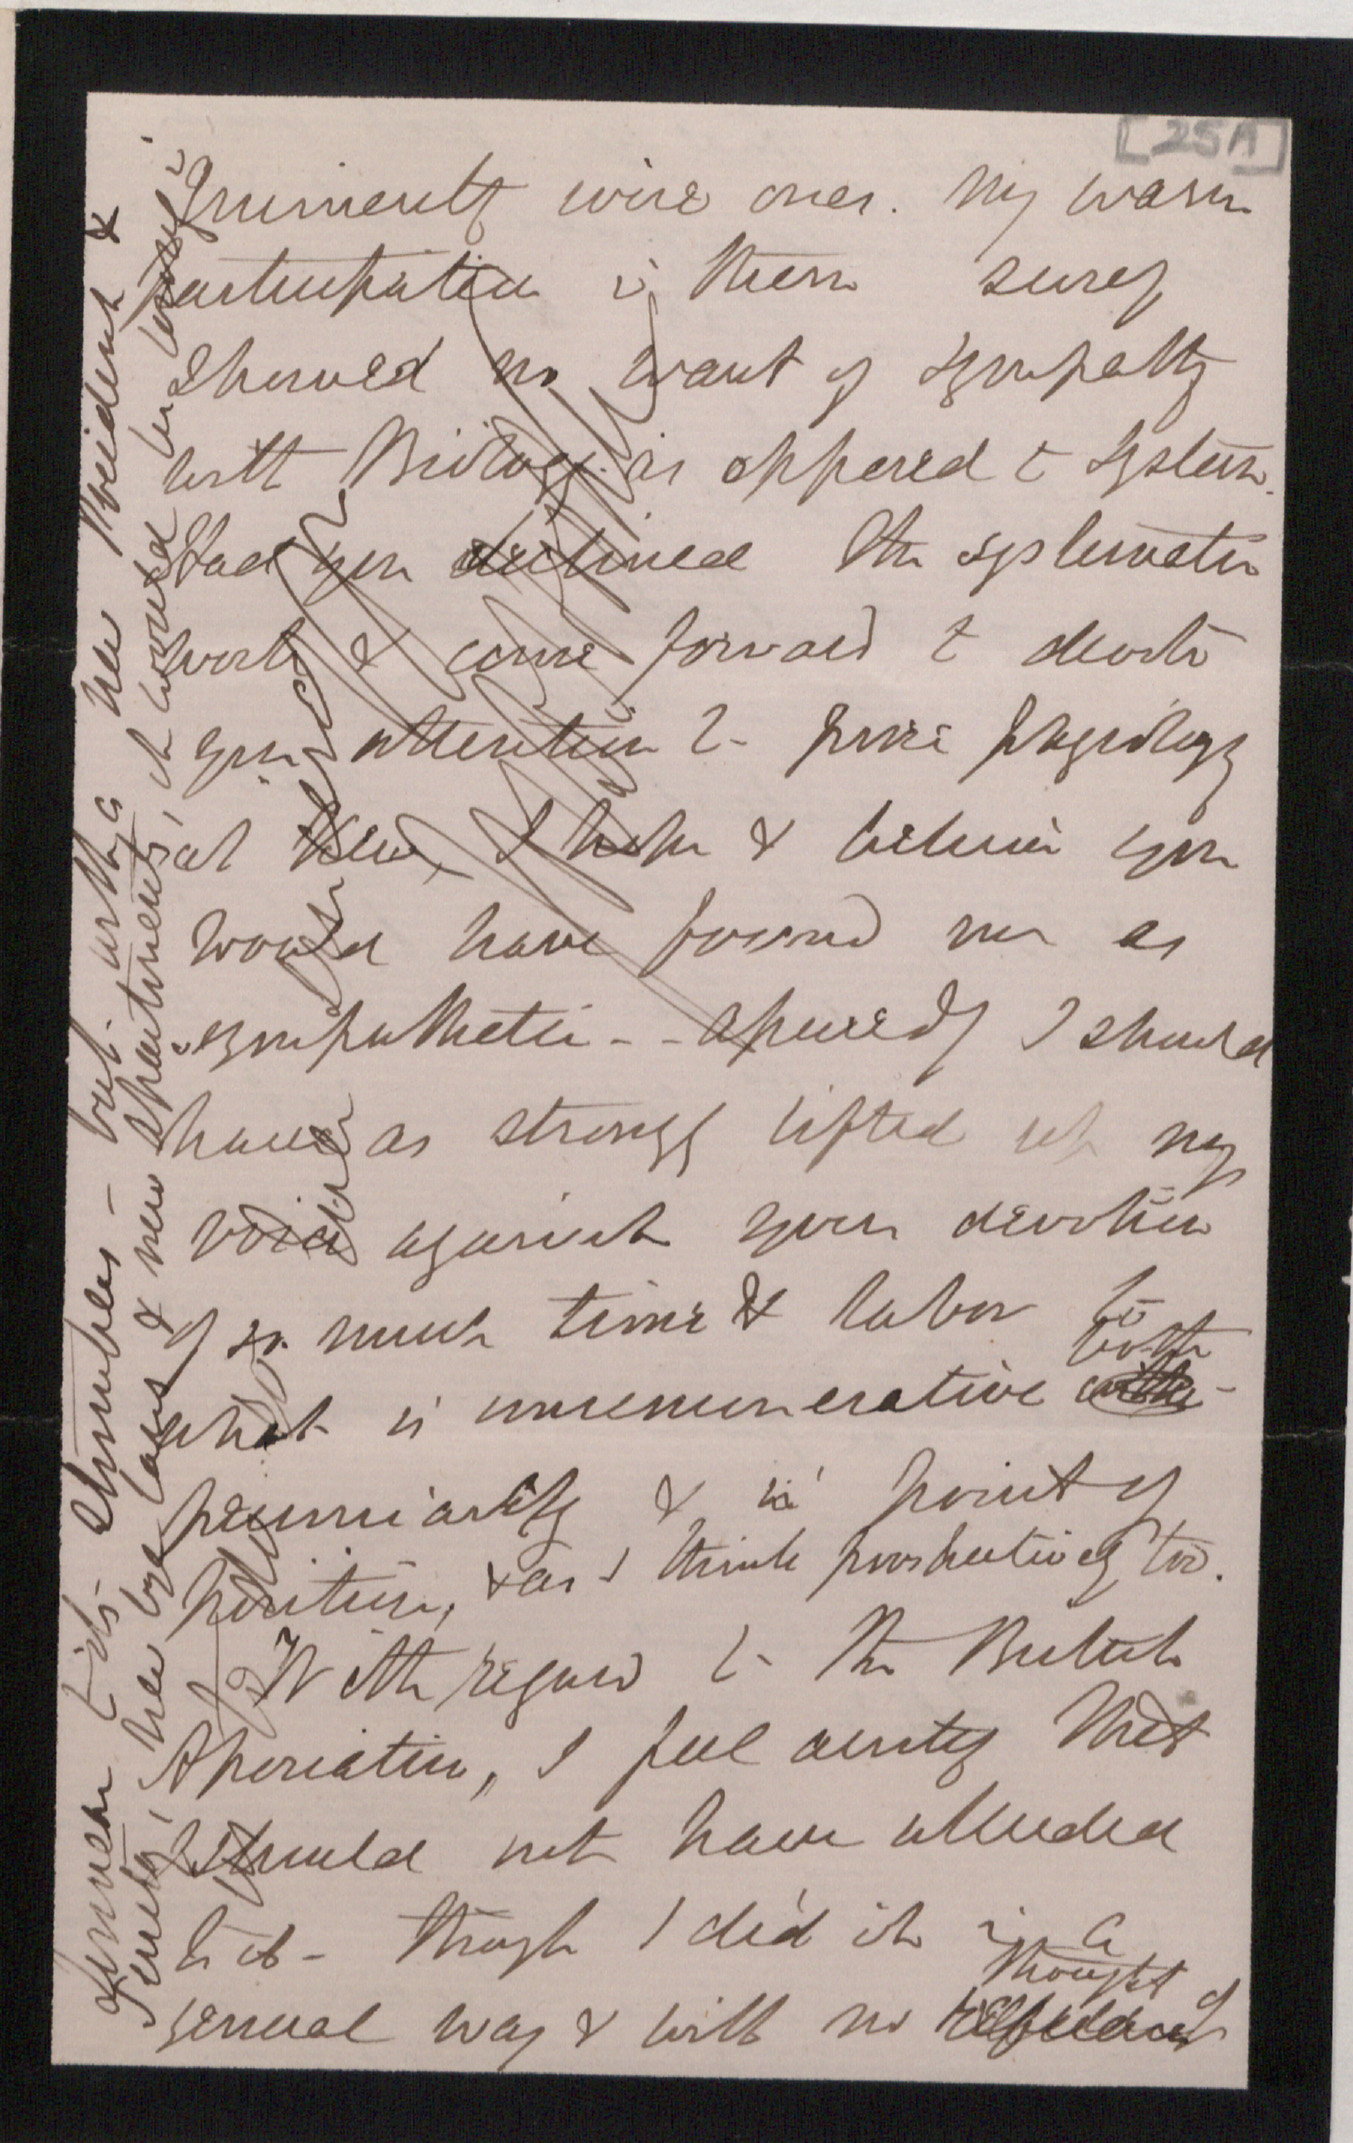 [25A]
eminently wise ones. My warm
participation in them surely
showed no want of sympathy
with Biology as opposed to System.
Had you declined the systematic
work & come forward to devote
your attention to pure physiology
at Kew, I hope & believe you
would have found me as
sympathetic -- assuredly I should
have as strongly lifted up my
voice against your devotion
of so much time & labor to
what is unremunerative both
pecuniarily & in point of
position, & as I think prospectively too.
With regard to the British
Association, I feel acutely that
I should not have alluded
to it - though I did it in a
general way & with no thought of
former to its Stumbles - but with a new President &
new bye laws & new Apartments, it would be